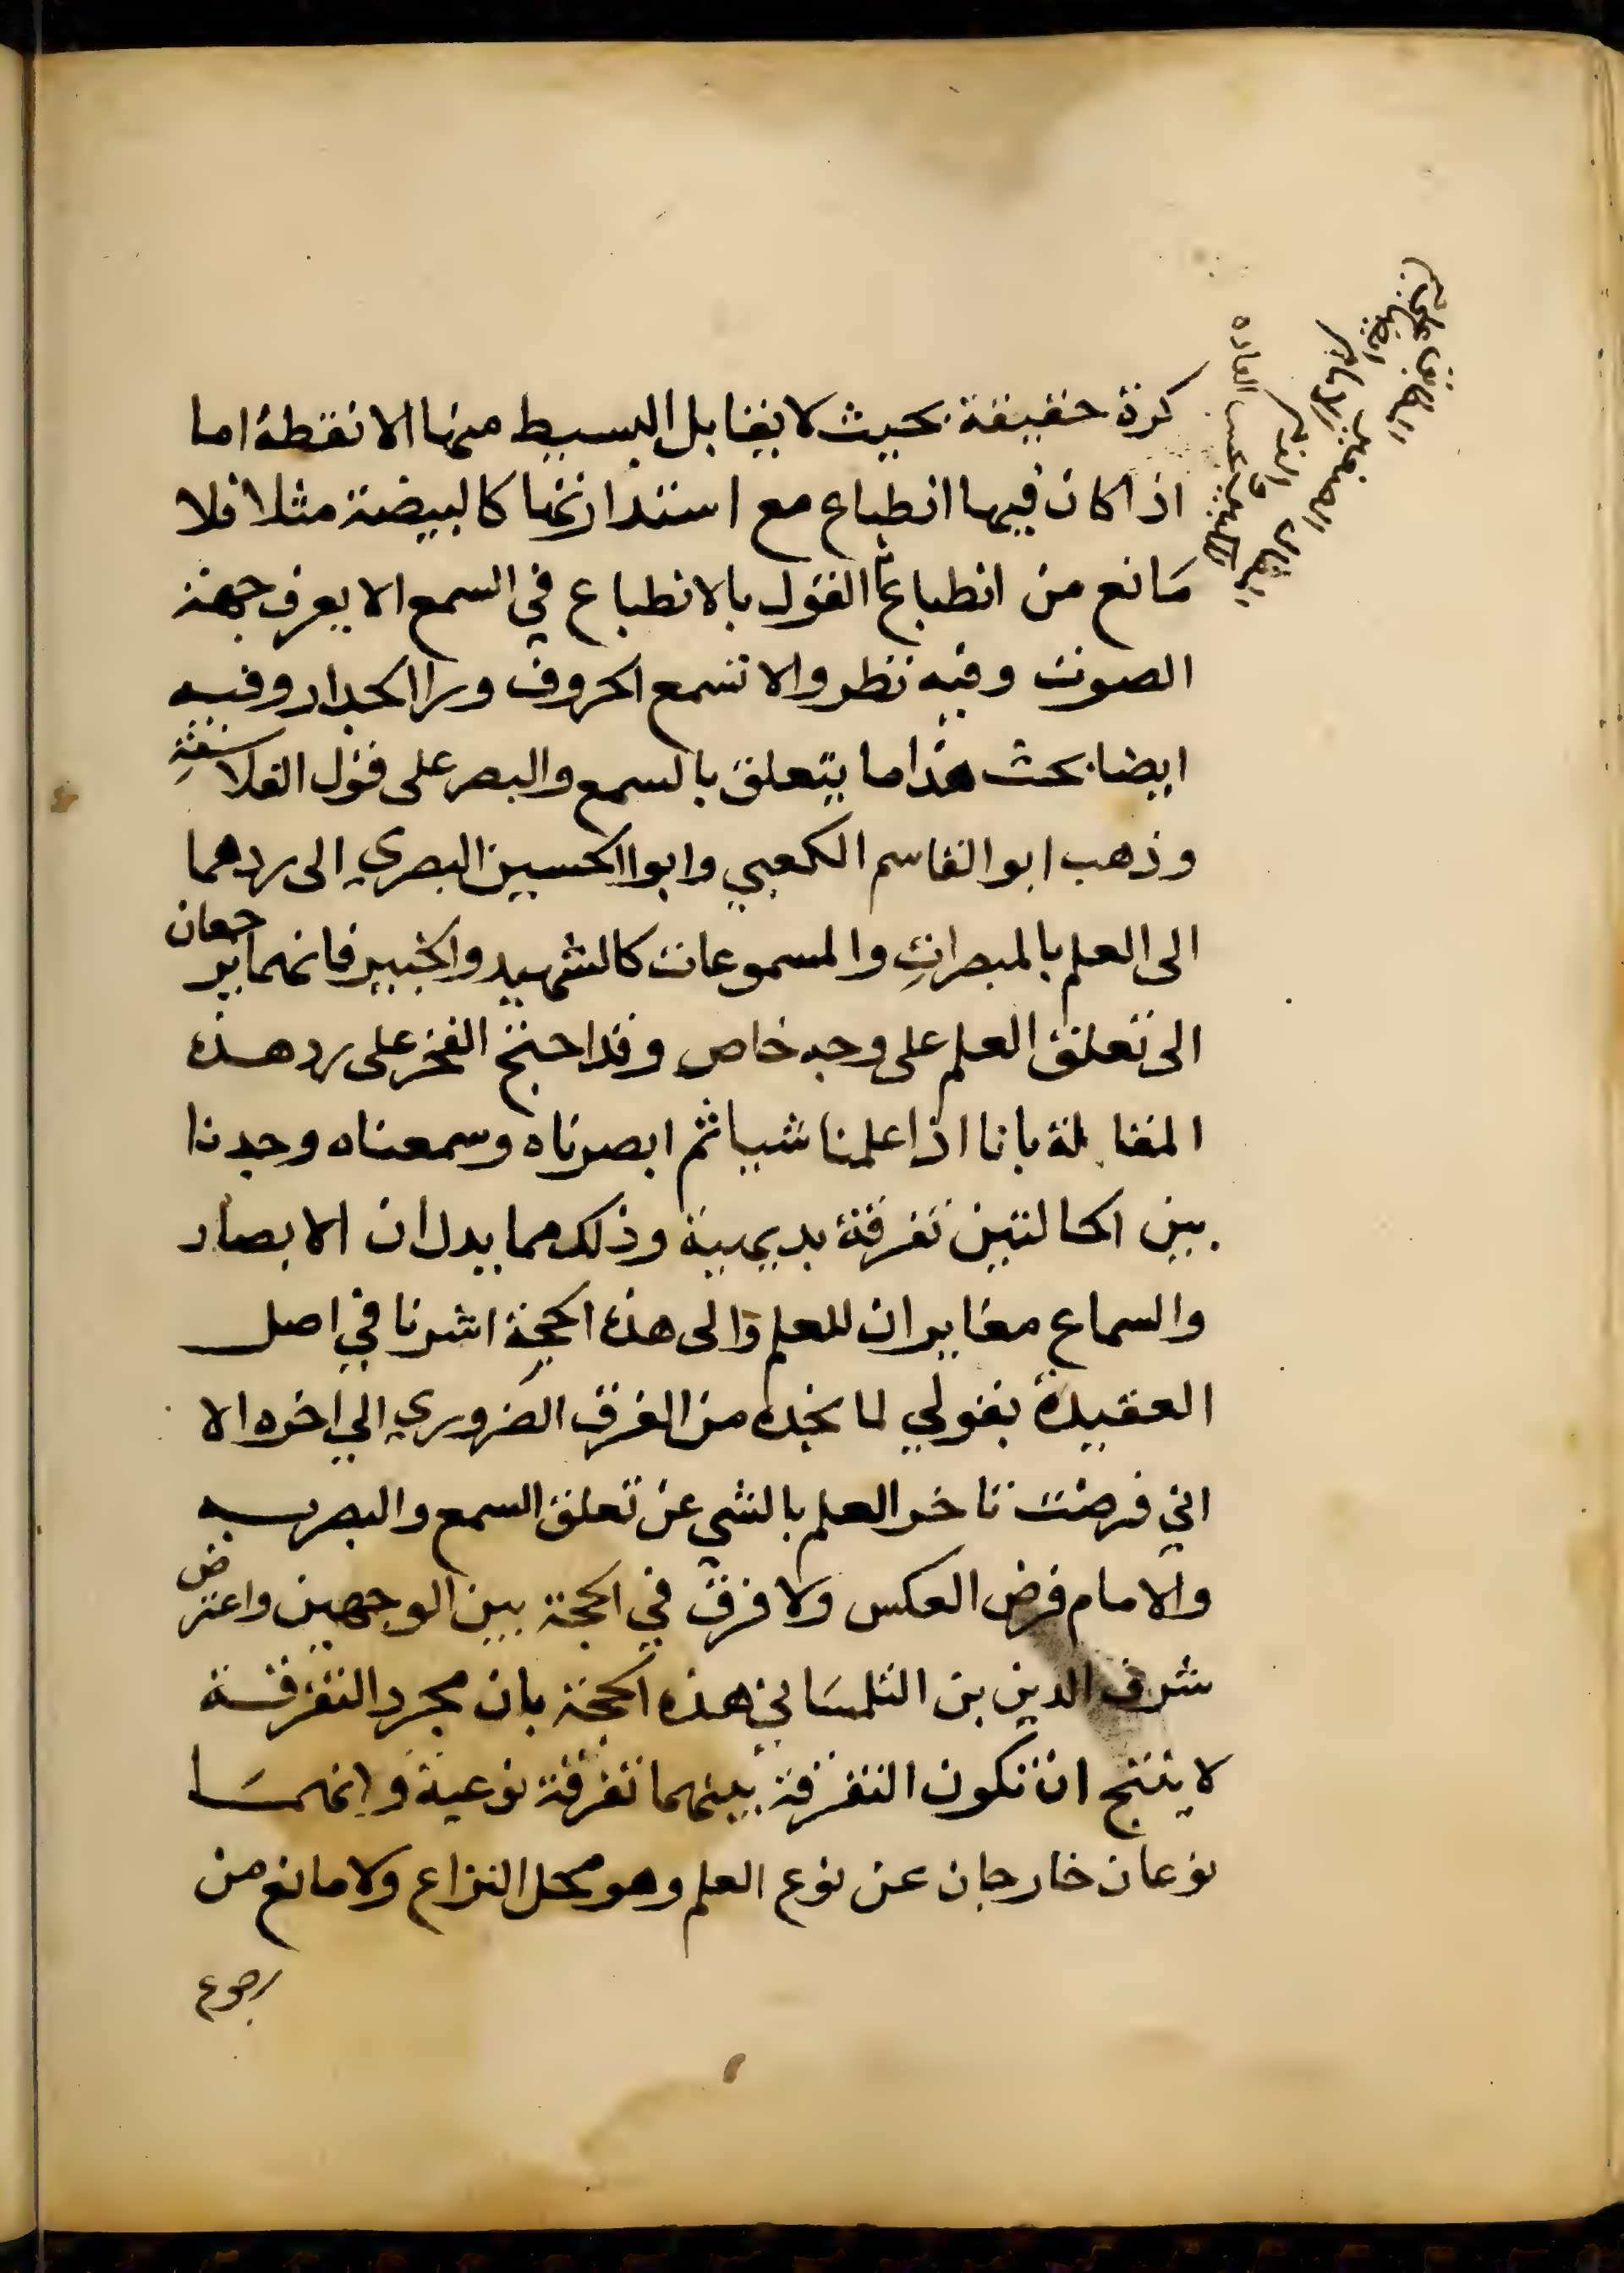 كرة حقيقة بحيث لا يقابل البسيط منها الا نقطة اما
اذا كان فيها انطباع مع استدارتها كالبيضة مثلا فلا
مانع من انطباع القول بالانطباع في السمع الا يعرف جهة
الصوت وفيه نظر والا تسمع الحروف ورا الجدار وفيه
ايضا بحث هذا ما يتعلق بالسمع والبصر على قول الفلاسفة
وذهب ابو القاسم الكعبي وابوا الحسين البصري الى ردهما
الى العلم بالمبصرات والمسموعات كالشهيد والخبير فانهما يرجعان
الى تعلق العلم على وجه خاص وقد احتج الفخر على رد هذه
المقابلة بانا اذا علمنا شيا ثم ابصرناه وسمعناه وجدنا
بين الحالتين تفرقة بديهية وذلك مما يدل ان الابصار
والسماع مغايران للعلم والى هذه الحجة اشرنا في اصل
العقيدة بقولي لما نجده من الفرق الضروري الي اخره الا
اني فرضت تاخر العلم بالشي عن تعلق السمع والبصر به
والامام فرض العكس ولا فرق في الحجة بين الوجهين واعترض
شرف الدين بن التلمساني هذه الحجة بان مجرد التفرقة
لا ينتج ان تكون التفرقة بينهما تفرقة نوعية وانهما
نوعان خارجان عن نوع العلم وهو محل النزاع ولا مانع من
رجوع